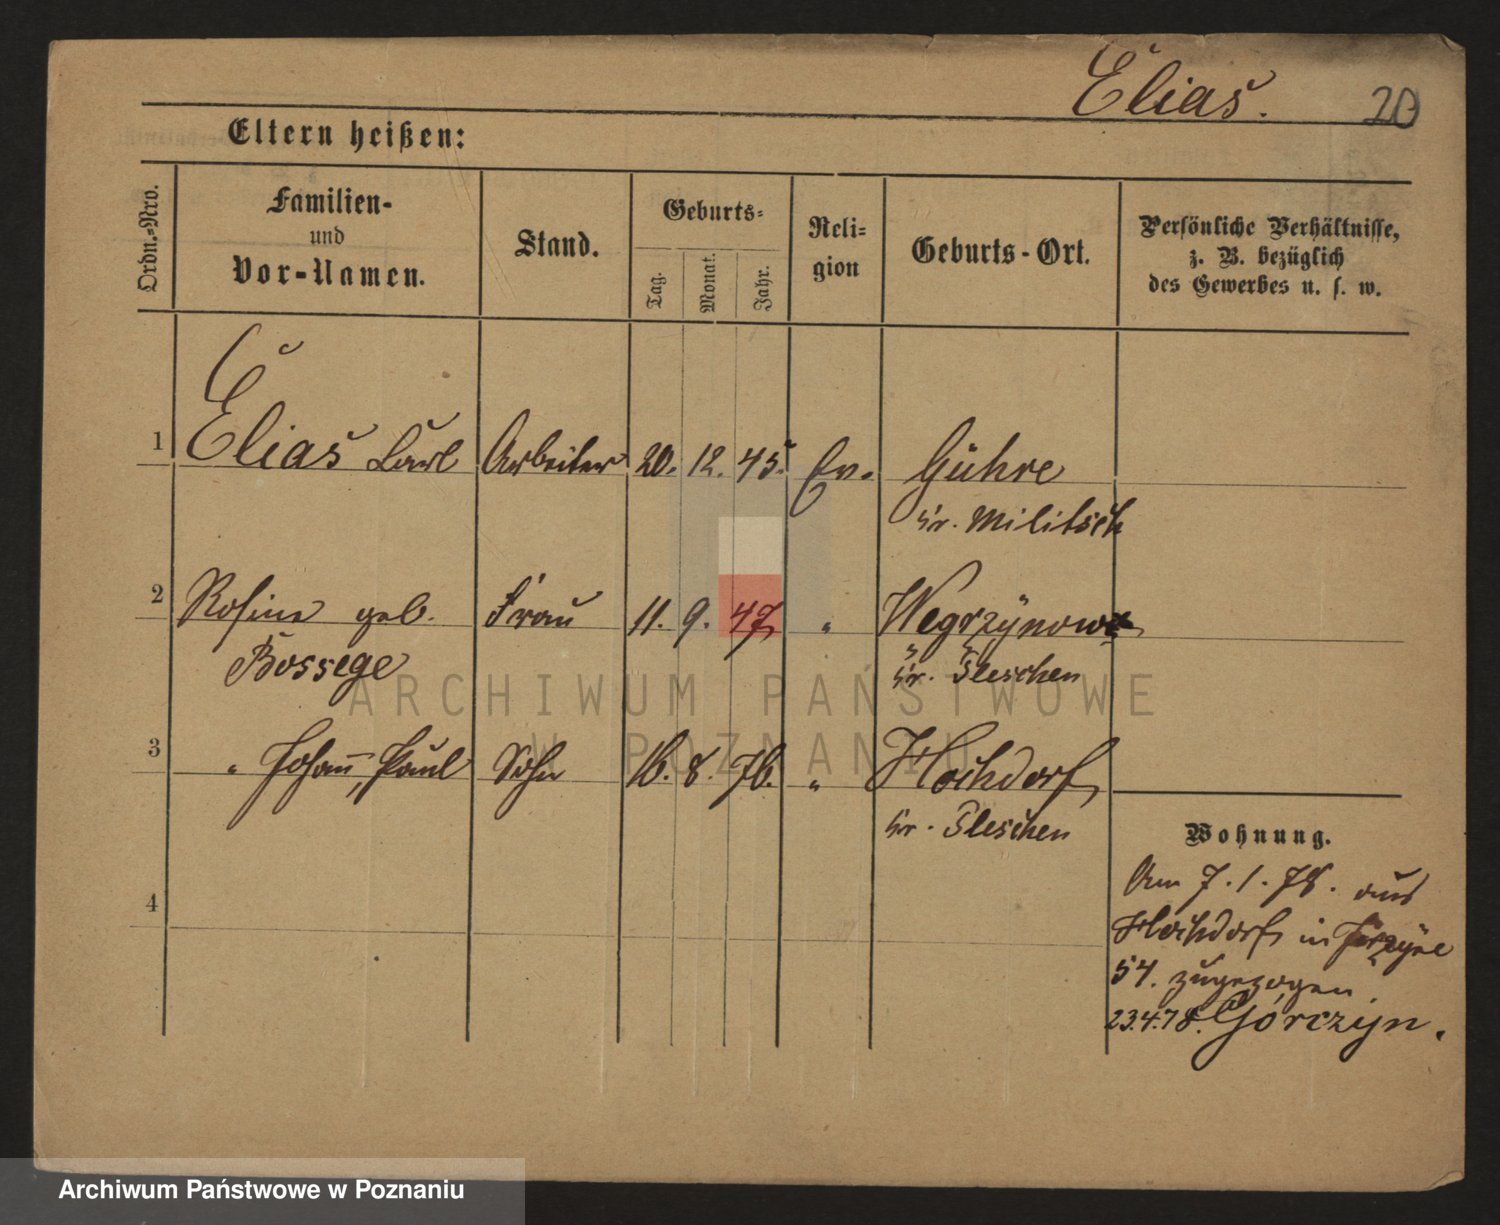 Elias. 20
Eltern heißen:
Ordn.-Nro.
Familien-
und
Vor-Namen.
Stand.
Geburts-
Tag.
Monat.
Jahr.
Reli-
gion
Geburts-Ort.
Persönliche Verhältnisse,
z. B. bezüglich
des Gewerbes u. s. w.
1 Elias Carl Arbeiter 20. 12. 45. Ev. Gühre
Kr. Militsch
2 Rosine geb. Frau 11. 9. 47 " Wegrzynowo
Bossege Kr. Pleschen
3 " Johann Paul Sohn 16. 8. 76. " Hochdorf
Kr. Pleschen
4
Wohnung.
Am 7.1.78. aus
Hochdorf in
54. zugezogen.
23.4.78. Górczyn.
ARCHIWUM PAŃSTWOWE
W POZNANIU
Archiwum Państwowe w Poznaniu